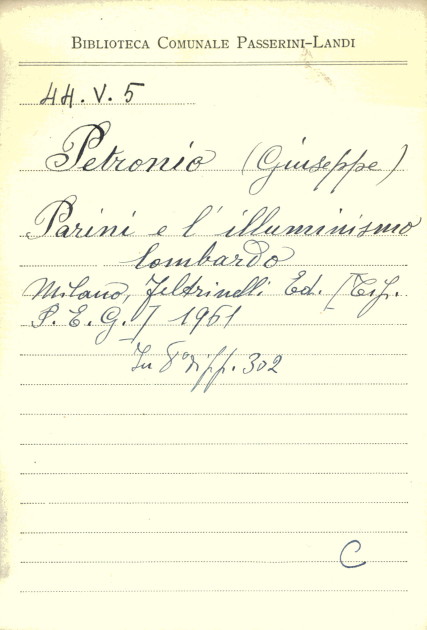 BIBLIOTECA COMUNALE PASSERINI-LANDI
44. V. 5
Petronio (Giuseppe)
Parini e l'illuminismo
lombardo
Milano, Feltrinelli Ed. [Tip.
P. E. G.] 1961
In 8° di pp. 302
C